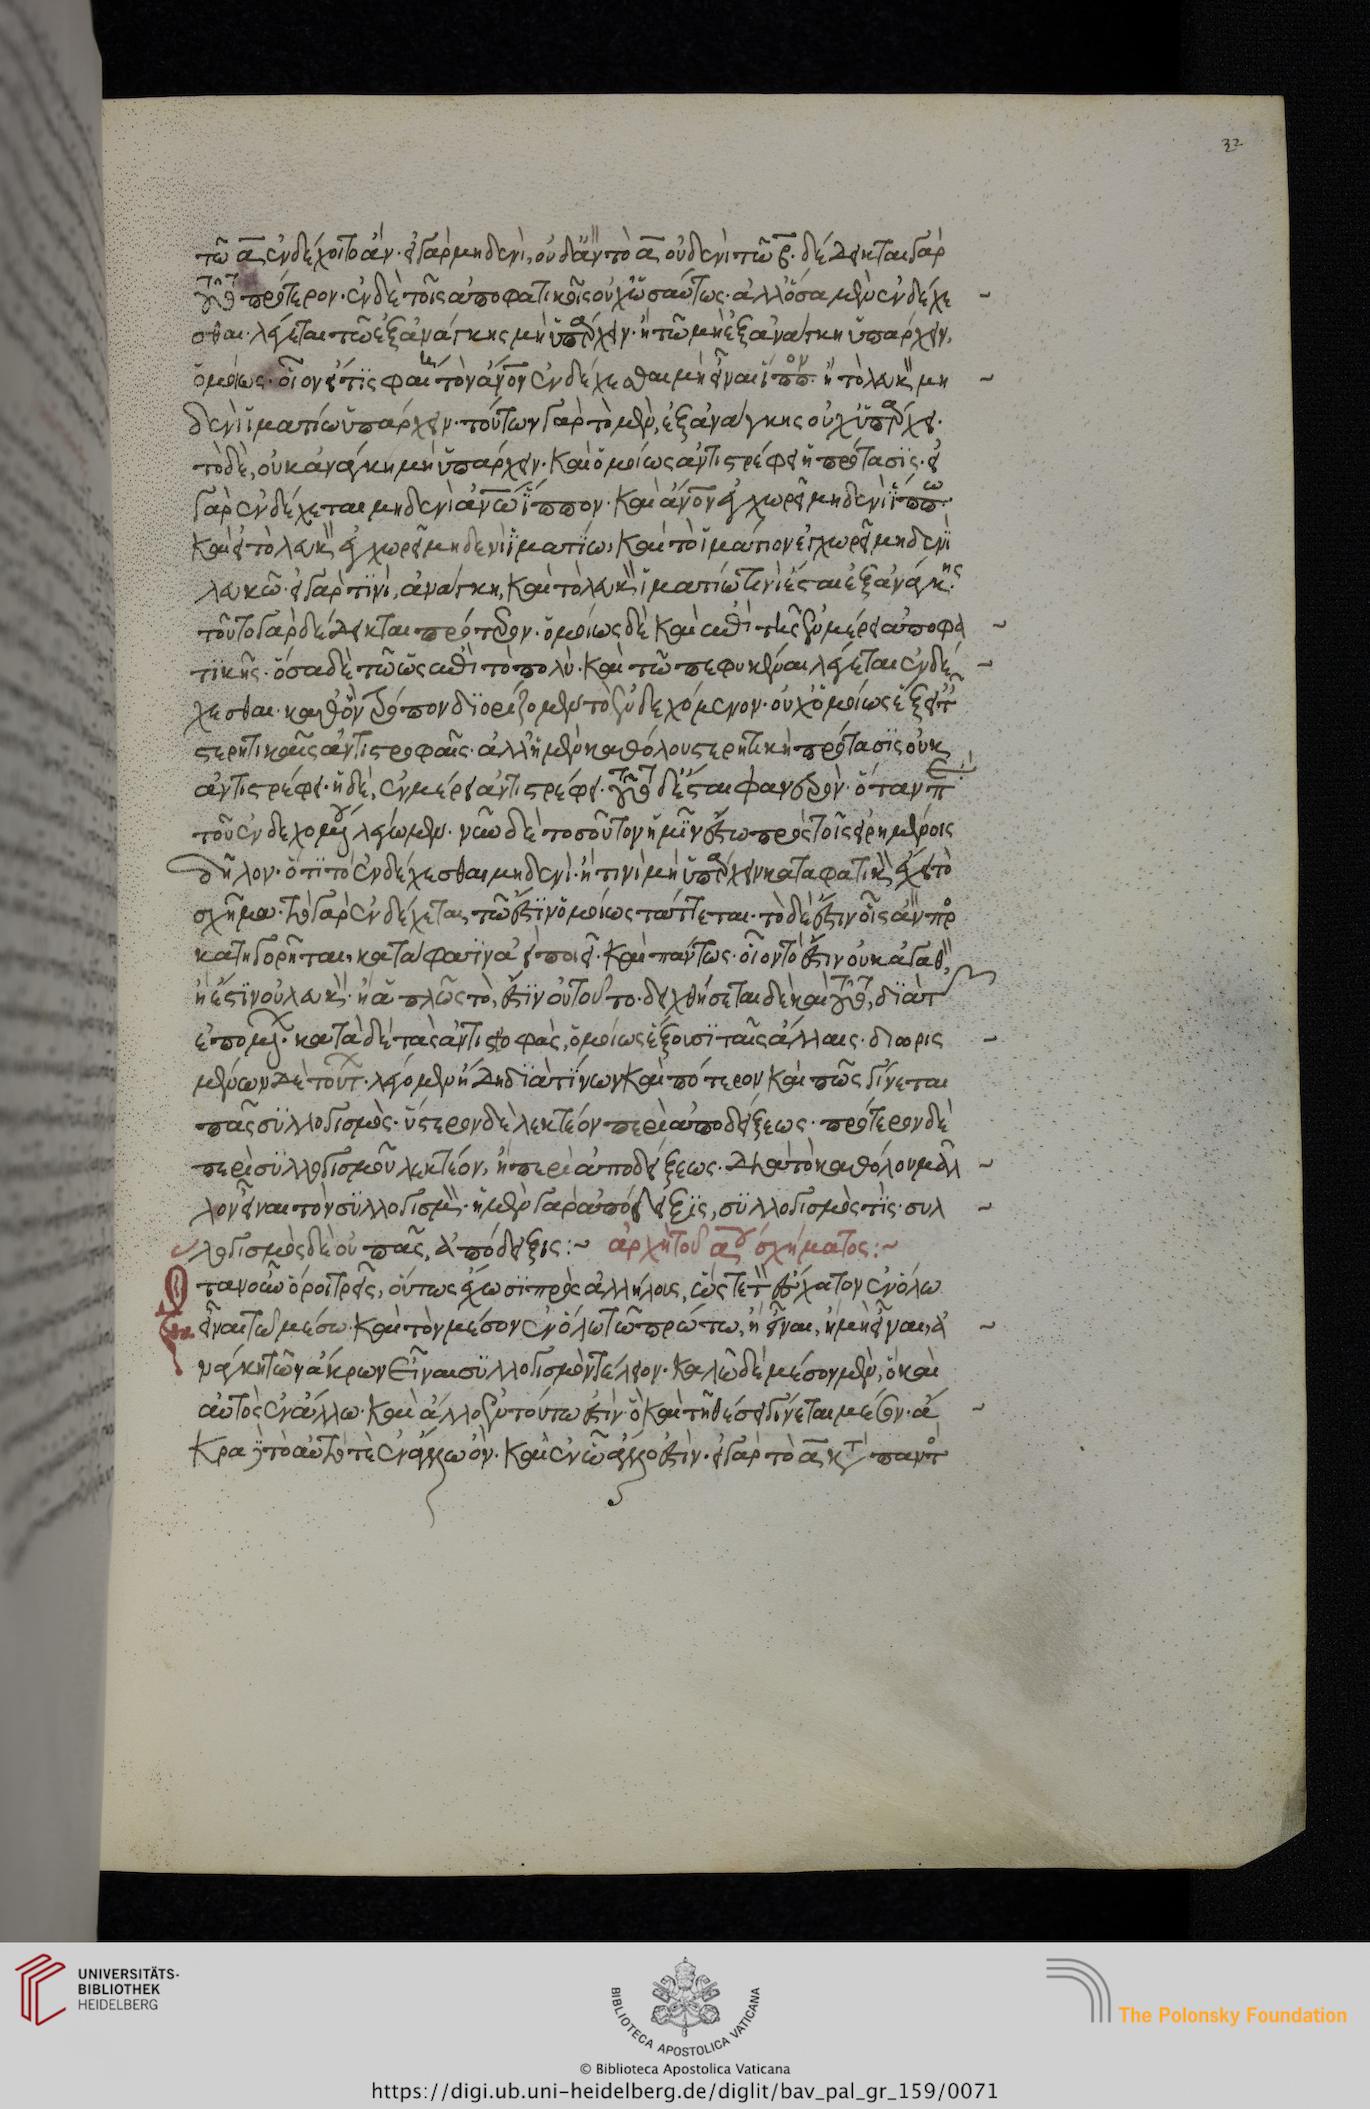 τῷ α̅ ἐνδέχοιτο ἄν· εἰ γὰρ μηδενὶ, οὐδ' ἂν τὸ α̅ οὐδενὶ τῷ β̅· δέδεικται γὰρ
τοῦτο πρότερον· ἐν δὲ τοῖς ἀποφατικοῖς οὐχ ὡσαύτως· ἀλλ' ὅσα μὲν ἐνδέχε
σθαι λέγεται τῷ ἐξ ἀνάγκης μὴ ὑπάρχειν· ἢ τῷ μὴ ἐξ ἀνάγκη ὑπάρχειν,
ὁμοίως· οἷον εἴ τις φαίη τὸν ἄνον ἐνδέχεσθαι μὴ εἶναι ἵππον· ἢ τὸ λευκὸν μη
δενὶ ἱματίω ὑπάρχειν· τούτων γὰρ τὸ μὲν, ἐξ ἀνάγκης οὐχ ὑπάρχει·
τὸ δὲ, οὐκ ἀνάγκη μὴ ὑπάρχειν· καὶ ὁμοίως ἀντιστρέφει ἡ πρότασις· εἰ
γὰρ ἐνδέχεται μηδενὶ ἀνω ἵππον· καὶ ἄνον ἐγχωρεῖ μηδενὶ ἵππω·
καὶ εἰ τὸ λευκὸν ἐγχωρεῖ μηδενὶ ἱματίω, καὶ τὸ ἱμάτιον ἐγχωρεῖ μηδενὶ
λευκῶ· εἰ γὰρ τινὶ, ἀνάγκη, καὶ τὸ λευκὸν ἱματίω τινὶ ἔσται ἐξ ἀνάγκης·
τοῦτο γὰρ δέδεικται πρότερον· ὁμοίως δὲ καὶ ἐπὶ τῆς ἐν μέρει ἀποφα
τικῆς· ὅσα δὲ τῷ ὡς ἐπὶ τὸ πολὺ· καὶ τῷ πεφυκέναι λέγεται ἐνδέ
χεσθαι· καθ' ὃν τρόπον διορίζομεν τὸ ἐνδεχόμενον· οὐχ ὁμοίως ἕξει ἐν τ
στερητικαῖς ἀντιστροφαῖς· ἀλλ' ἡ μὲν καθόλου στερητικὴ πρότασις οὐκ
ἀντιστρέφει· ἡ δὲ, ἐν μέρει ἀντιστρέφει· τοῦτο δὲ ἔσται φανερὸν· ὅταν περὶ
τοῦ ἐνδεχομένου λέγωμεν· νῦν δὲ τοσοῦτον ἡμῖν ἔστω πρὸς τοῖς εἰρημένοις
δῆλον· ὅτι τὸ ἐνδέχεσθαι μηδενὶ· ἢ τινὶ μὴ ὑπάρχειν καταφατικὸν ἔχει τὸ
σχῆμα· τὸ γὰρ ἐνδέχεται, τῷ ἔστιν ὁμοίως τάττεται· τὸ δὲ ἔστιν οἷς ἂν προσ
κατηγορῆται, κατάφασιν ἀεὶ ποιεῖ· καὶ πάντως· οἷον τὸ ἔστιν οὐκ ἀγαθὸν,
ἢ ἔστιν οὐ λευκὸν· ἢ ἁπλῶς τὸ, ἔστιν οὐ τοῦτο· δειχθήσεται δὲ καὶ τοῦτο, διὰ τ
ἑπομένων· κατὰ δὲ τὰς ἀντιστροφὰς, ὁμοίως ἕξουσι ταῖς ἄλλαις· διωρις
μένων δὲ τούτων· λέγομεν ἤδη διὰ τίνων καὶ πότερον καὶ πῶς γίνεται
πᾶς συλλογισμὸς· ὕστερον δὲ λεκτέον περὶ ἀποδείξεως· πρότερον δὲ
περὶ συλλογισμοῦ λεκτέον, ἢ περὶ ἀποδείξεως· διὰ τὸ καθόλου μᾶλ
λον εἶναι τὸν συλλογισμὸν· ἡ μὲν γὰρ ἀπόδειξις, συλλογισμὸς τὶς· συλ
λογισμὸς δὲ οὐ πᾶς, ἀπόδειξις:~ ἀρχὴ τοῦ αου σχήματος:~
Ὅταν οὖν ὅροι τρεῖς, οὕτως ἔχωσι πρὸς ἀλλήλους, ὥστε τὸν ἔσχατον ἐν ὅλω
εἶναι τῶ μέσω· καὶ τὸν μέσον ἐν ὅλω τῶ πρώτω, ἢ εἶναι, ἢ μὴ εἶναι, ἀ
νάγκη τῶν ἄκρων εἶναι συλλογισμὸν τέλειον· καλῶ δὲ μέσον μὲν, ὃ καὶ
αὐτὸς ἐν ἄλλω· καὶ ἄλλο ἐν τούτω ἐστὶν· ὃ καὶ τῇ θέσει γίνεται μέσον· ἄ
κρα δὲ τὸ αὐτό τε ἐν ἄλλω ὂν· καὶ ἐν ᾧ ἄλλο ἐστὶν· εἰ γὰρ τὸ α̅ κατὰ παντὸς
32
UNIVERSITÄTS-
BIBLIOTHEK
HEIDELBERG
BIBLIOTECA APOSTOLICA VATICANA
The Polonsky Foundation
© Biblioteca Apostolica Vaticana
https://digi.ub.uni-heidelberg.de/diglit/bav_pal_gr_159/0071